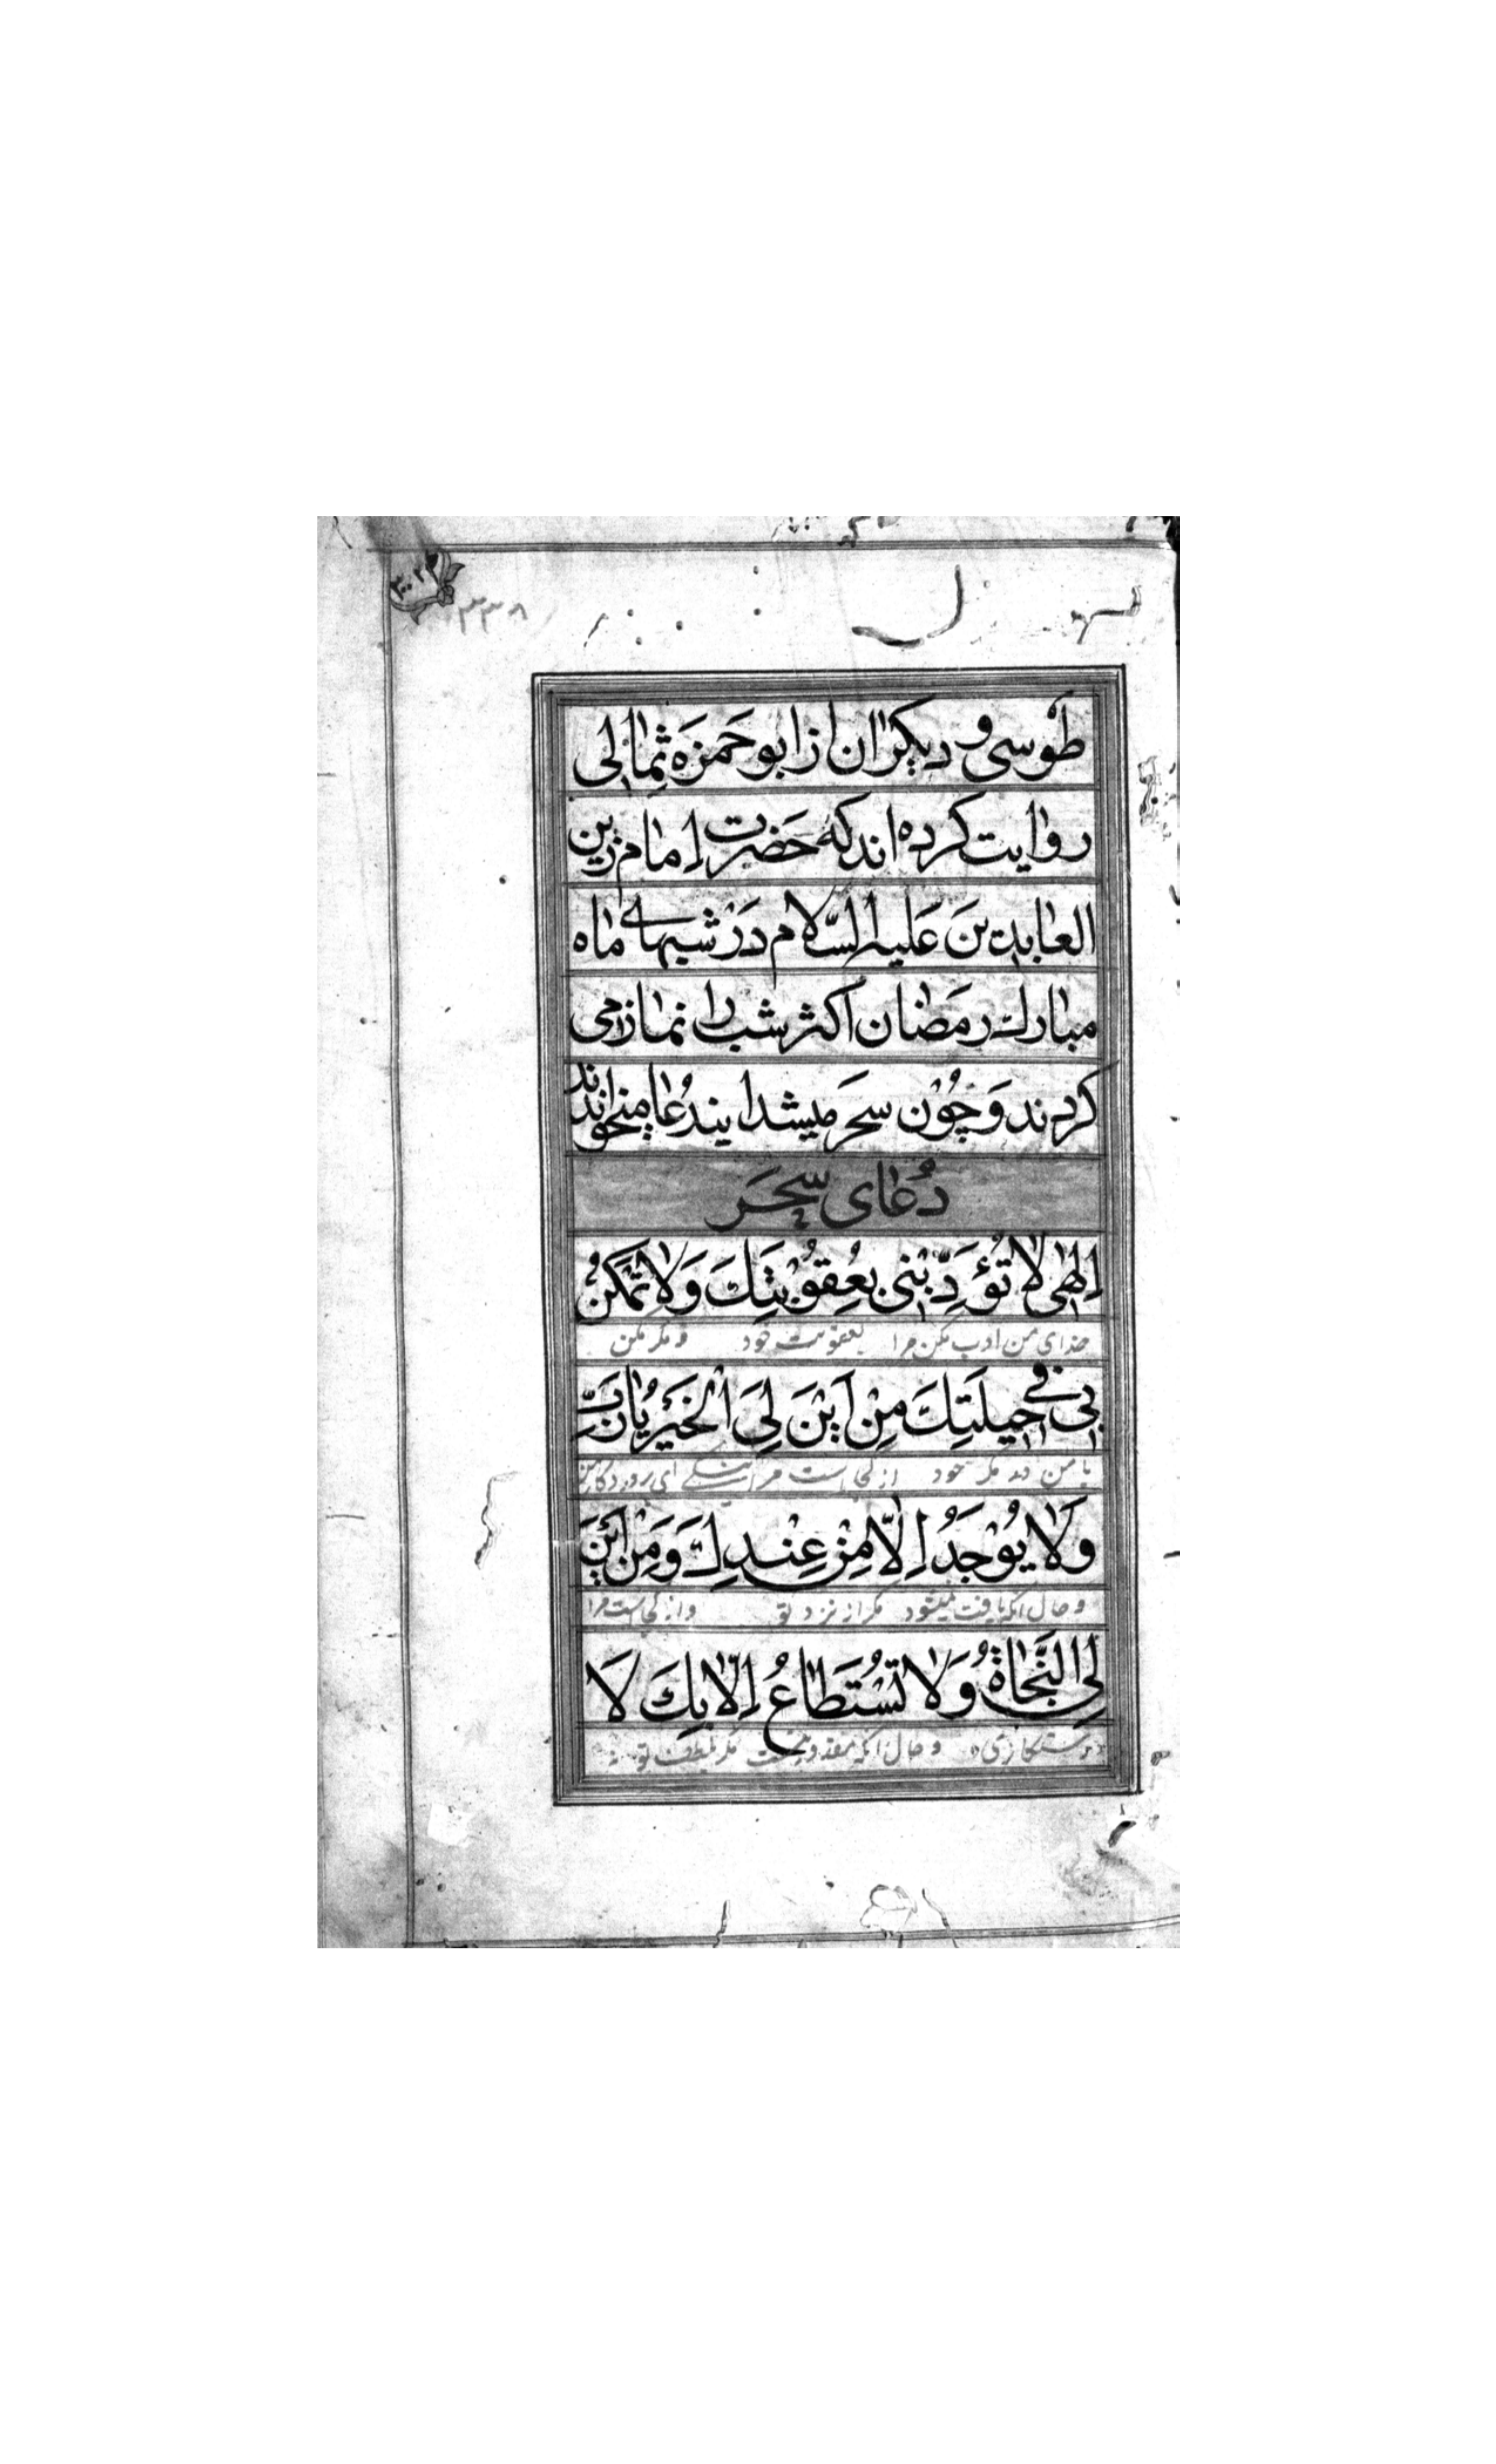 ۳۰۲
۳۳۸
طوسی و دیکران از ابو حَمزَه ثِمالی
روایت کرده اند که حَضرت اِمام زین
العابدین عَلیه السَّلام دَر شبهای ماه
مبارك رمَضان اکثر شب را نماز می
کردند وَ چُون سَحَر میشد این دُعا میخواندند
دُعای سِحَر
اِلٰهی لا تُؤَدِّبْنی بِعُقُوْبَتِكَ وَلا تَمْكُرْ
خدای من ادب مکن مرا بعقوبت خود و مکر مکن
بی فی حیلَتِكَ مِنْ اَیْنَ لِیَ الْخَیْرُ یا رَبِّ
با من در مکر خود از کجاست مرا نیکی ای پروردکار من
وَلا یُوْجَدُ اِلّا مِنْ عِنْدِكَ وَمِنْ اَیْنَ
و حال آنکه یافت نمیشود مکر از نزد تو و از کجاست مرا
لِیَ النَّجاةُ وَلا تُسْتَطاعُ اِلّا بِكَ لَا
رستکاری و حال آنکه مقدور نیست مکر بلطف تو